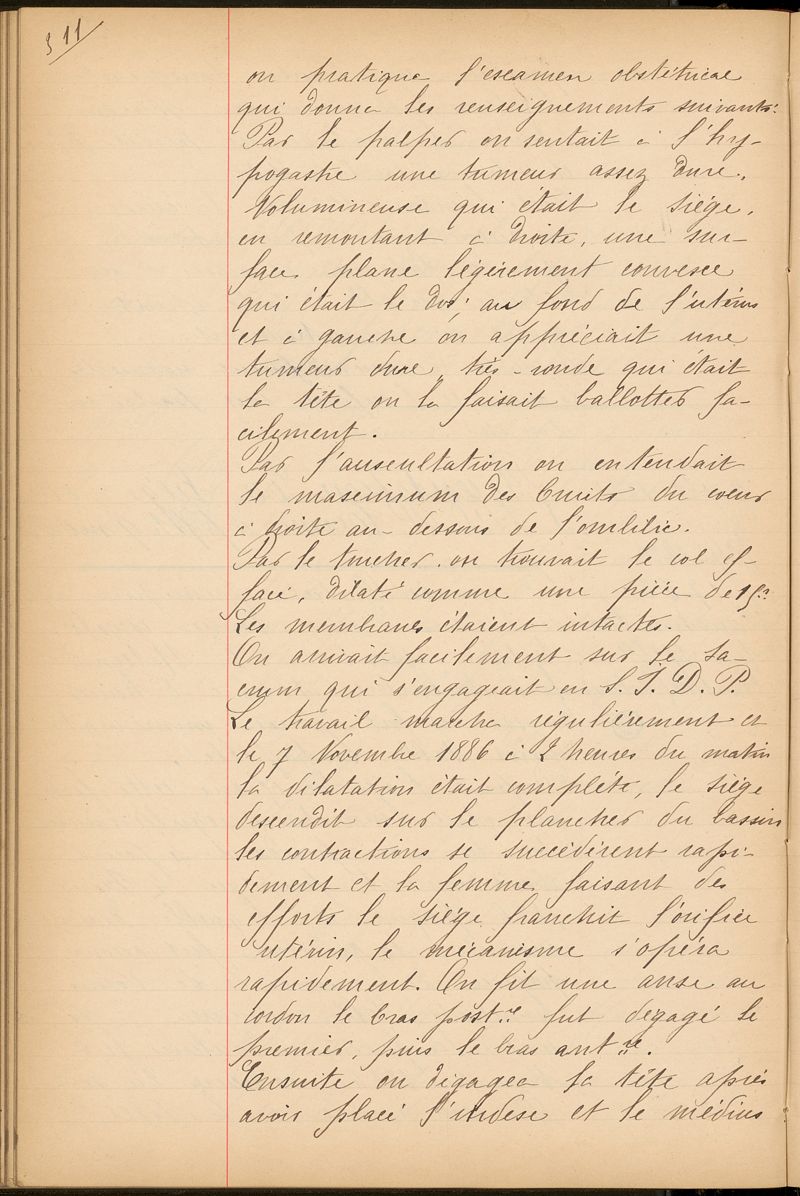 311
on pratiqua l'examen obstétrical
qui donna les renseignements suivants:
Par le palper on sentait à l'hy-
pogastre une tumeur assez dure,
volumineuse qui était le siège,
en remontant à droite, une sur-
face plane légèrement convexe
qui était le dos; au fond de l'utérus
et à gauche on appréciait une
tumeur dure, très-ronde qui était
la tête on la faisait ballotter fa-
cilement.
Par l'auscultation on entendait
le maximum des bruits du cœur
à droite au-dessous de l'ombilic.
Par le toucher on trouvait le col ef-
facé, dilaté comme une pièce de
Les membranes étaient intactes.
On arrivait facilement sur le sa-
crum qui s'engageait en S. I. D. P.
Le travail marcha régulièrement et
le 7 Novembre 1886 à 2 heures du matin
la dilatation était complète, le siège
descendit sur le plancher du bassin
les contractions se succédèrent rapi-
dement et la femme faisant des
efforts le siège franchit l'orifice
utérin, le mécanisme s'opéra
rapidement. On fit une anse au
cordon le bras post.re fut dégagé le
premier, puis le bras ant.re.
Ensuite on dégagea la tête après
avoir placé l'index et le médius